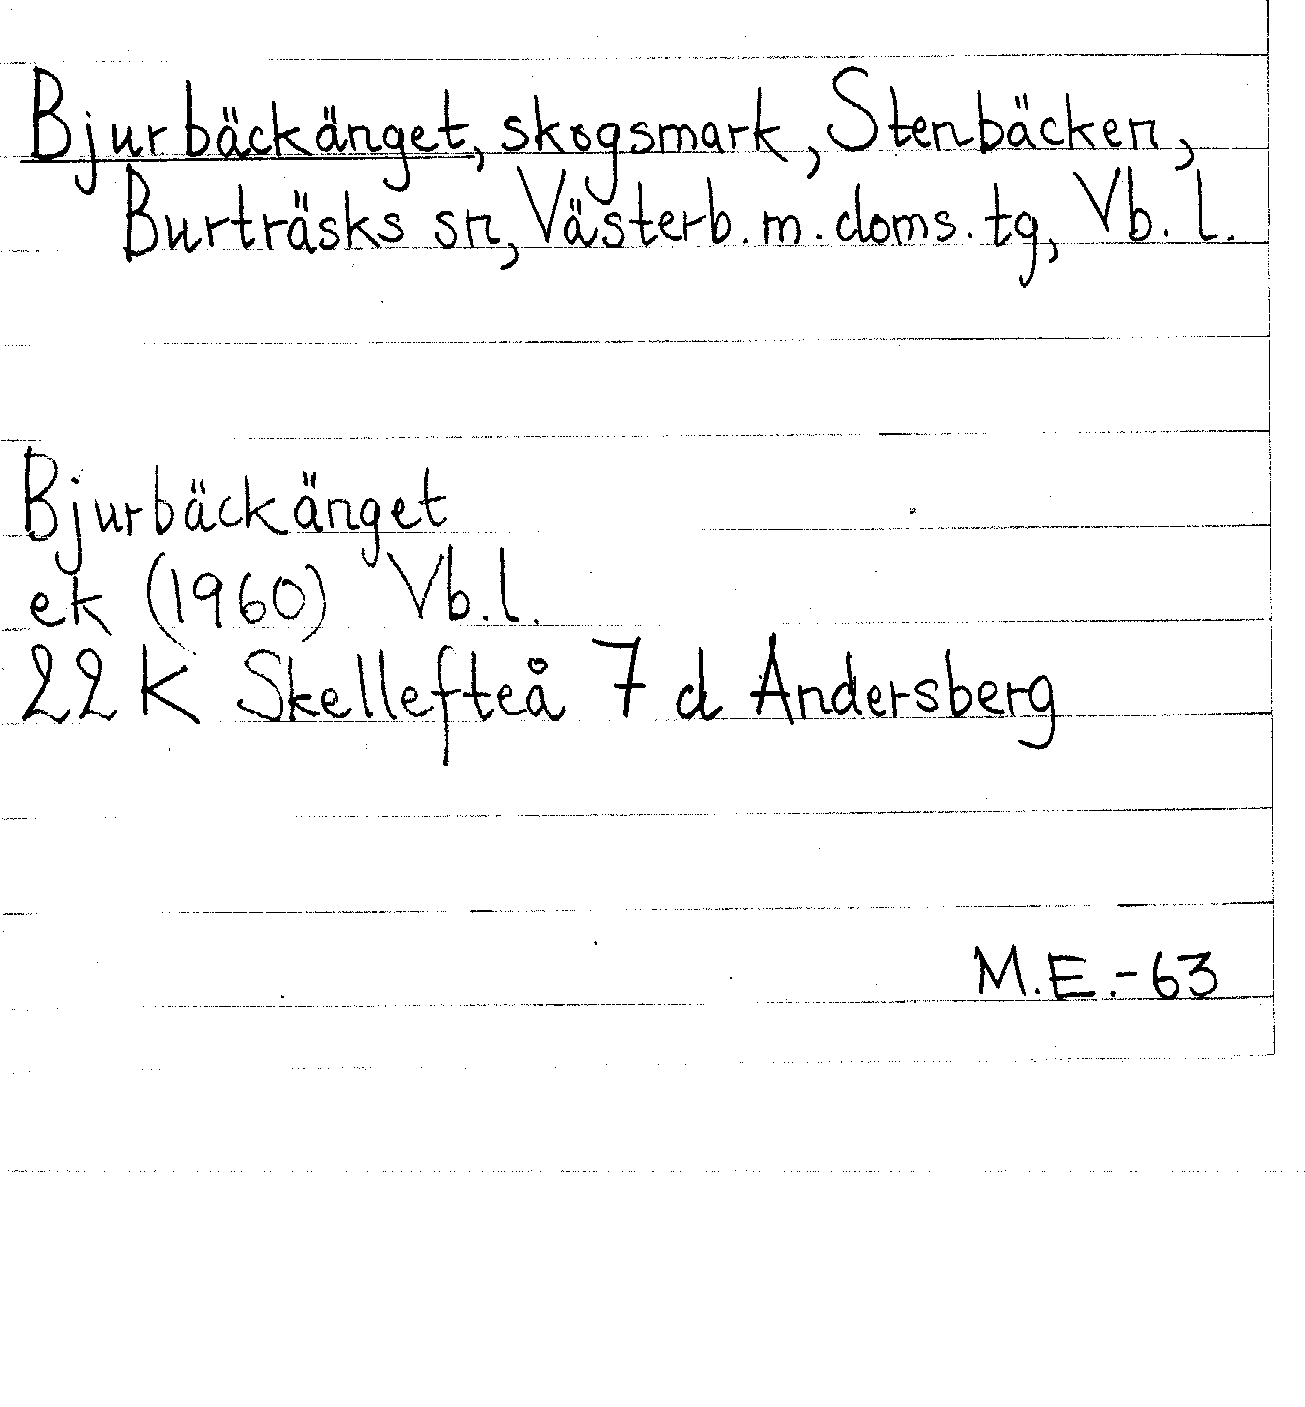 Bjurbäckänget, skogsmark, Stenbäcken,
Burträsks sn, Västerb. m. doms. tg, Vb. l.
Bjurbäckänget
ek (1960) Vb. l.
22 K Skellefteå 7 d Andersberg
M.E.-63